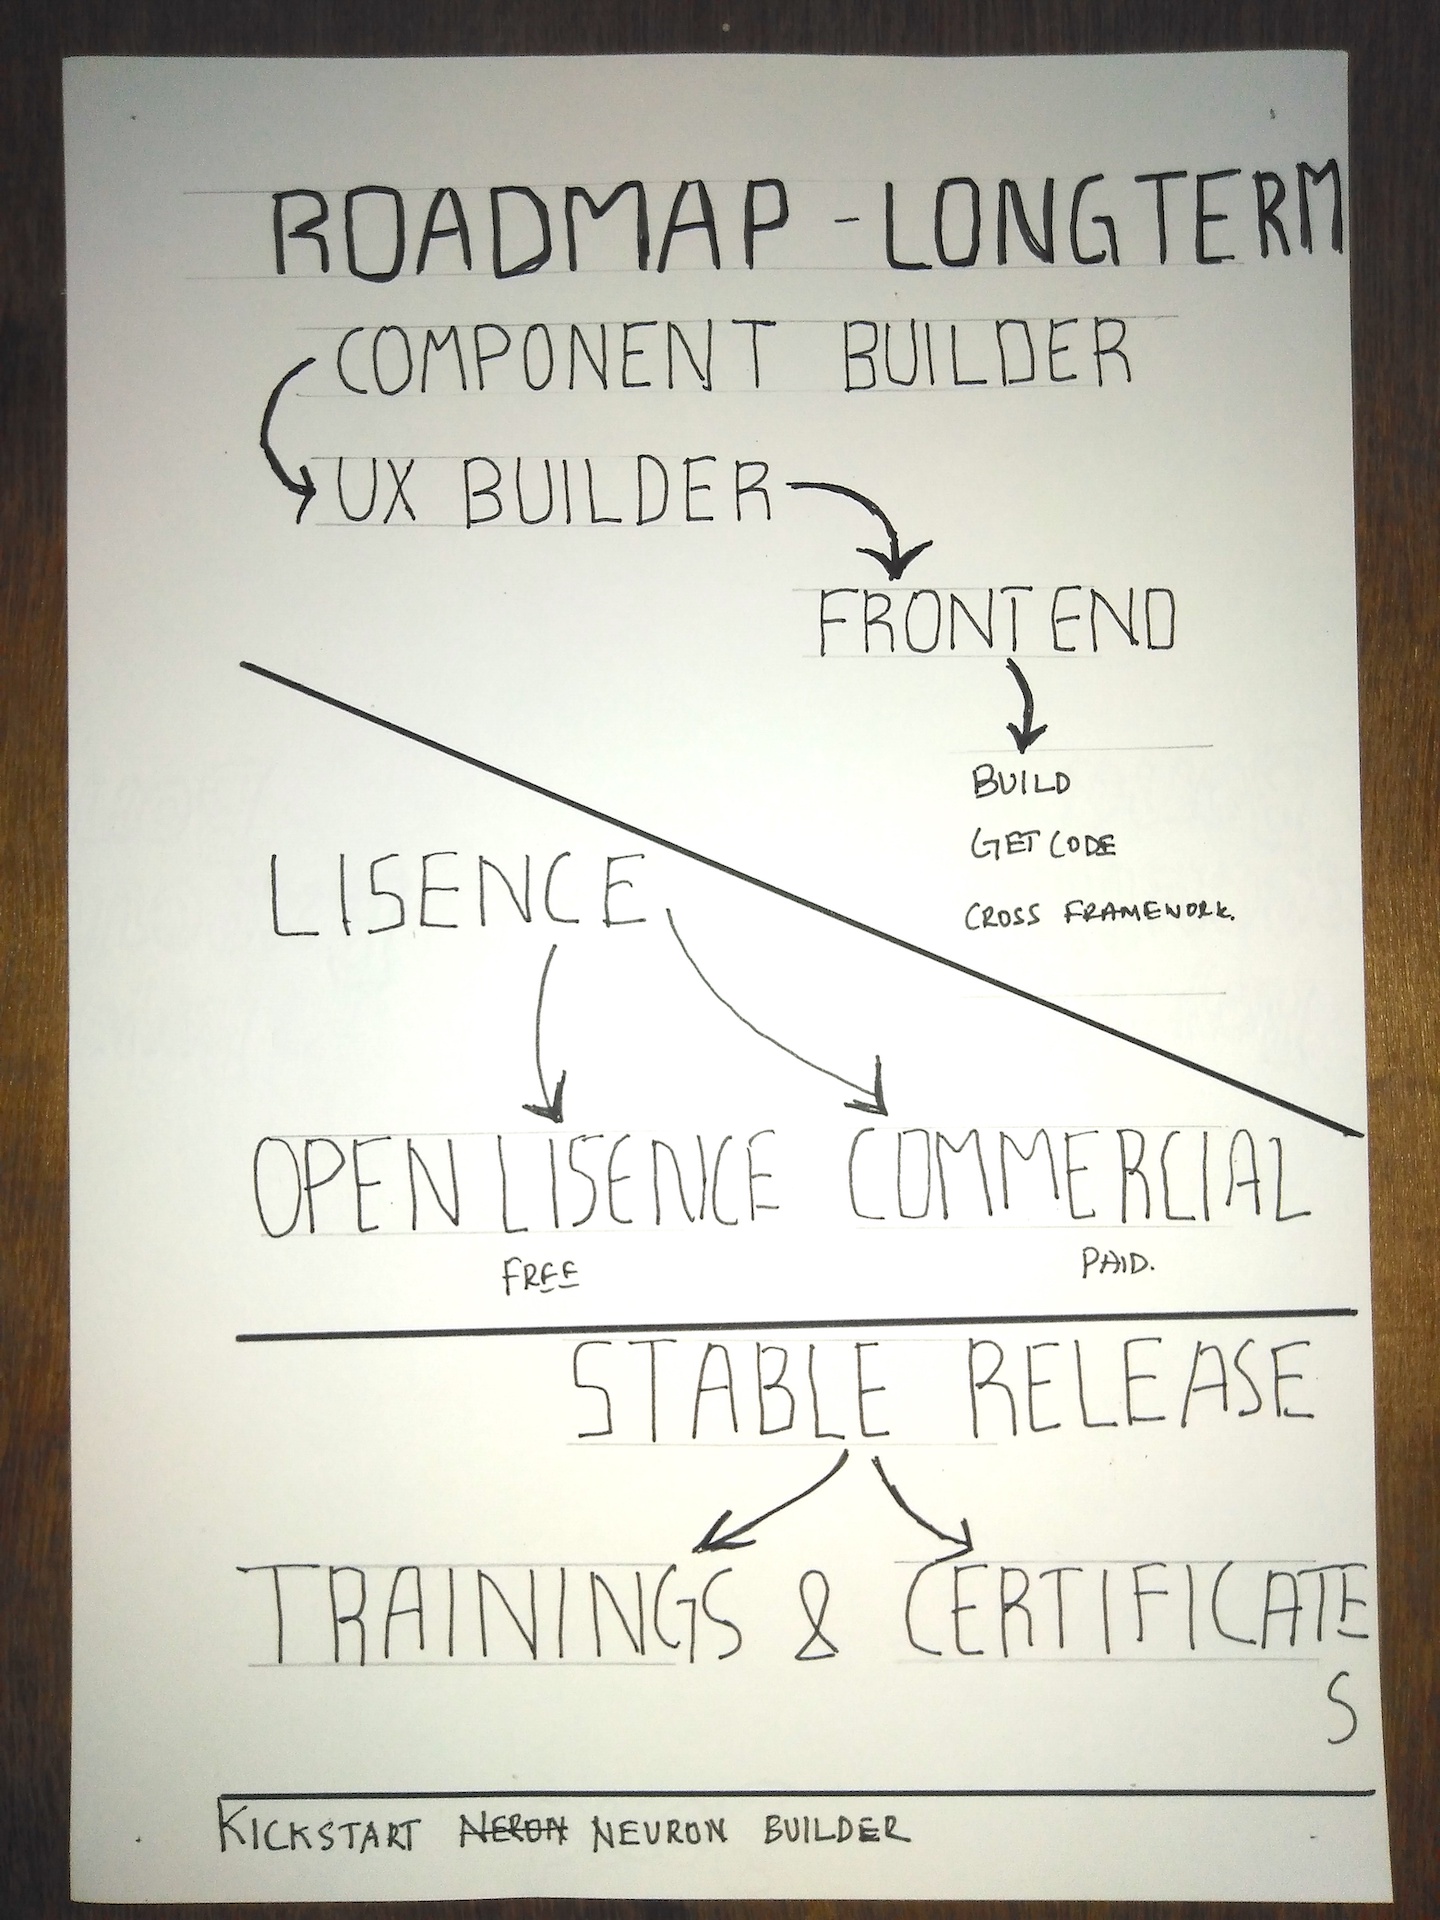 ROADMAP - LONG TERM
COMPONENT BUILDER
UX BUILDER
FRONT END
BUILD
GET CODE
CROSS FRAMEWORK.
LISENCE
OPEN LISENCE COMMERCIAL
FREE PAID.
STABLE RELEASE
TRAININGS & CERTIFICATE
S
KICKSTART NERON NEURON BUILDER